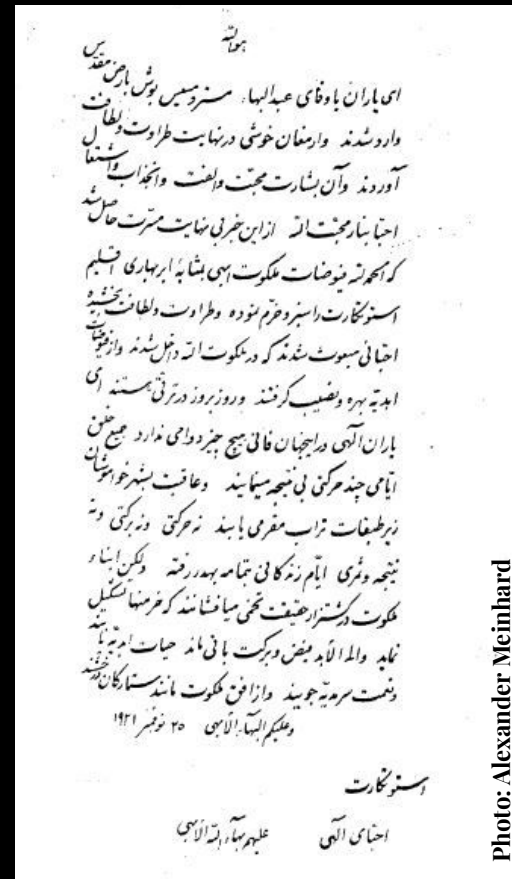 هوالله
ای یاران باوفای عبدالبهاء مستر و مسیس بوش بارض مقدس
وارد شدند وارمغان خوشی درنهایت طراوت ولطافت
آوردند وآن بشارت محبت والفت وانجذاب واشتعال
احبا بنار محبت الله ازاین خبر بی نهایت مسرت حاصل شد
که الحمدلله فیوضات ملکوت ابهی بمثابهٔ ابر بهاری اقلیم
استوتکارت را سبز وخرّم نموده وطراوت ولطافت بخشیده
احبائی مبعوث شدند که در ملکوت الله داخل شدند وازفیوضات
ابدیّه بهره ونصیب گرفتند وروزبروز درترقّی هستند ای
یاران الهی دراینجهان فانی هیچ چیز دوامی ندارد جمیع خلق
ایّامی چند حرکتی بی نتیجه مینمایند وعاقبت بشهر خاموشان
زیر طبقات تراب مقرمی یابند نه حرکتی ونه برکتی ونه
نتیجه وثمری ایّام زندگانی بتمامه بهدر رفته ولکن ابناء
ملکوت درکشتزار حقیقت تخمی میافشانند که خرمنها تشکیل
نماید والی الأبد فیض وبرکت باقی ماند حیات ابدیّه یابند
ونعمت سرمدیّه جویند وازافق ملکوت مانند ستارگان درخشند
وعلیکم البهاء الأبهی ۲۵ نوفمبر ۱۹۲۱
استوتکارت
احبای الهی علیهم بهاء الله الأبهی
Photo: Alexander Meinhard